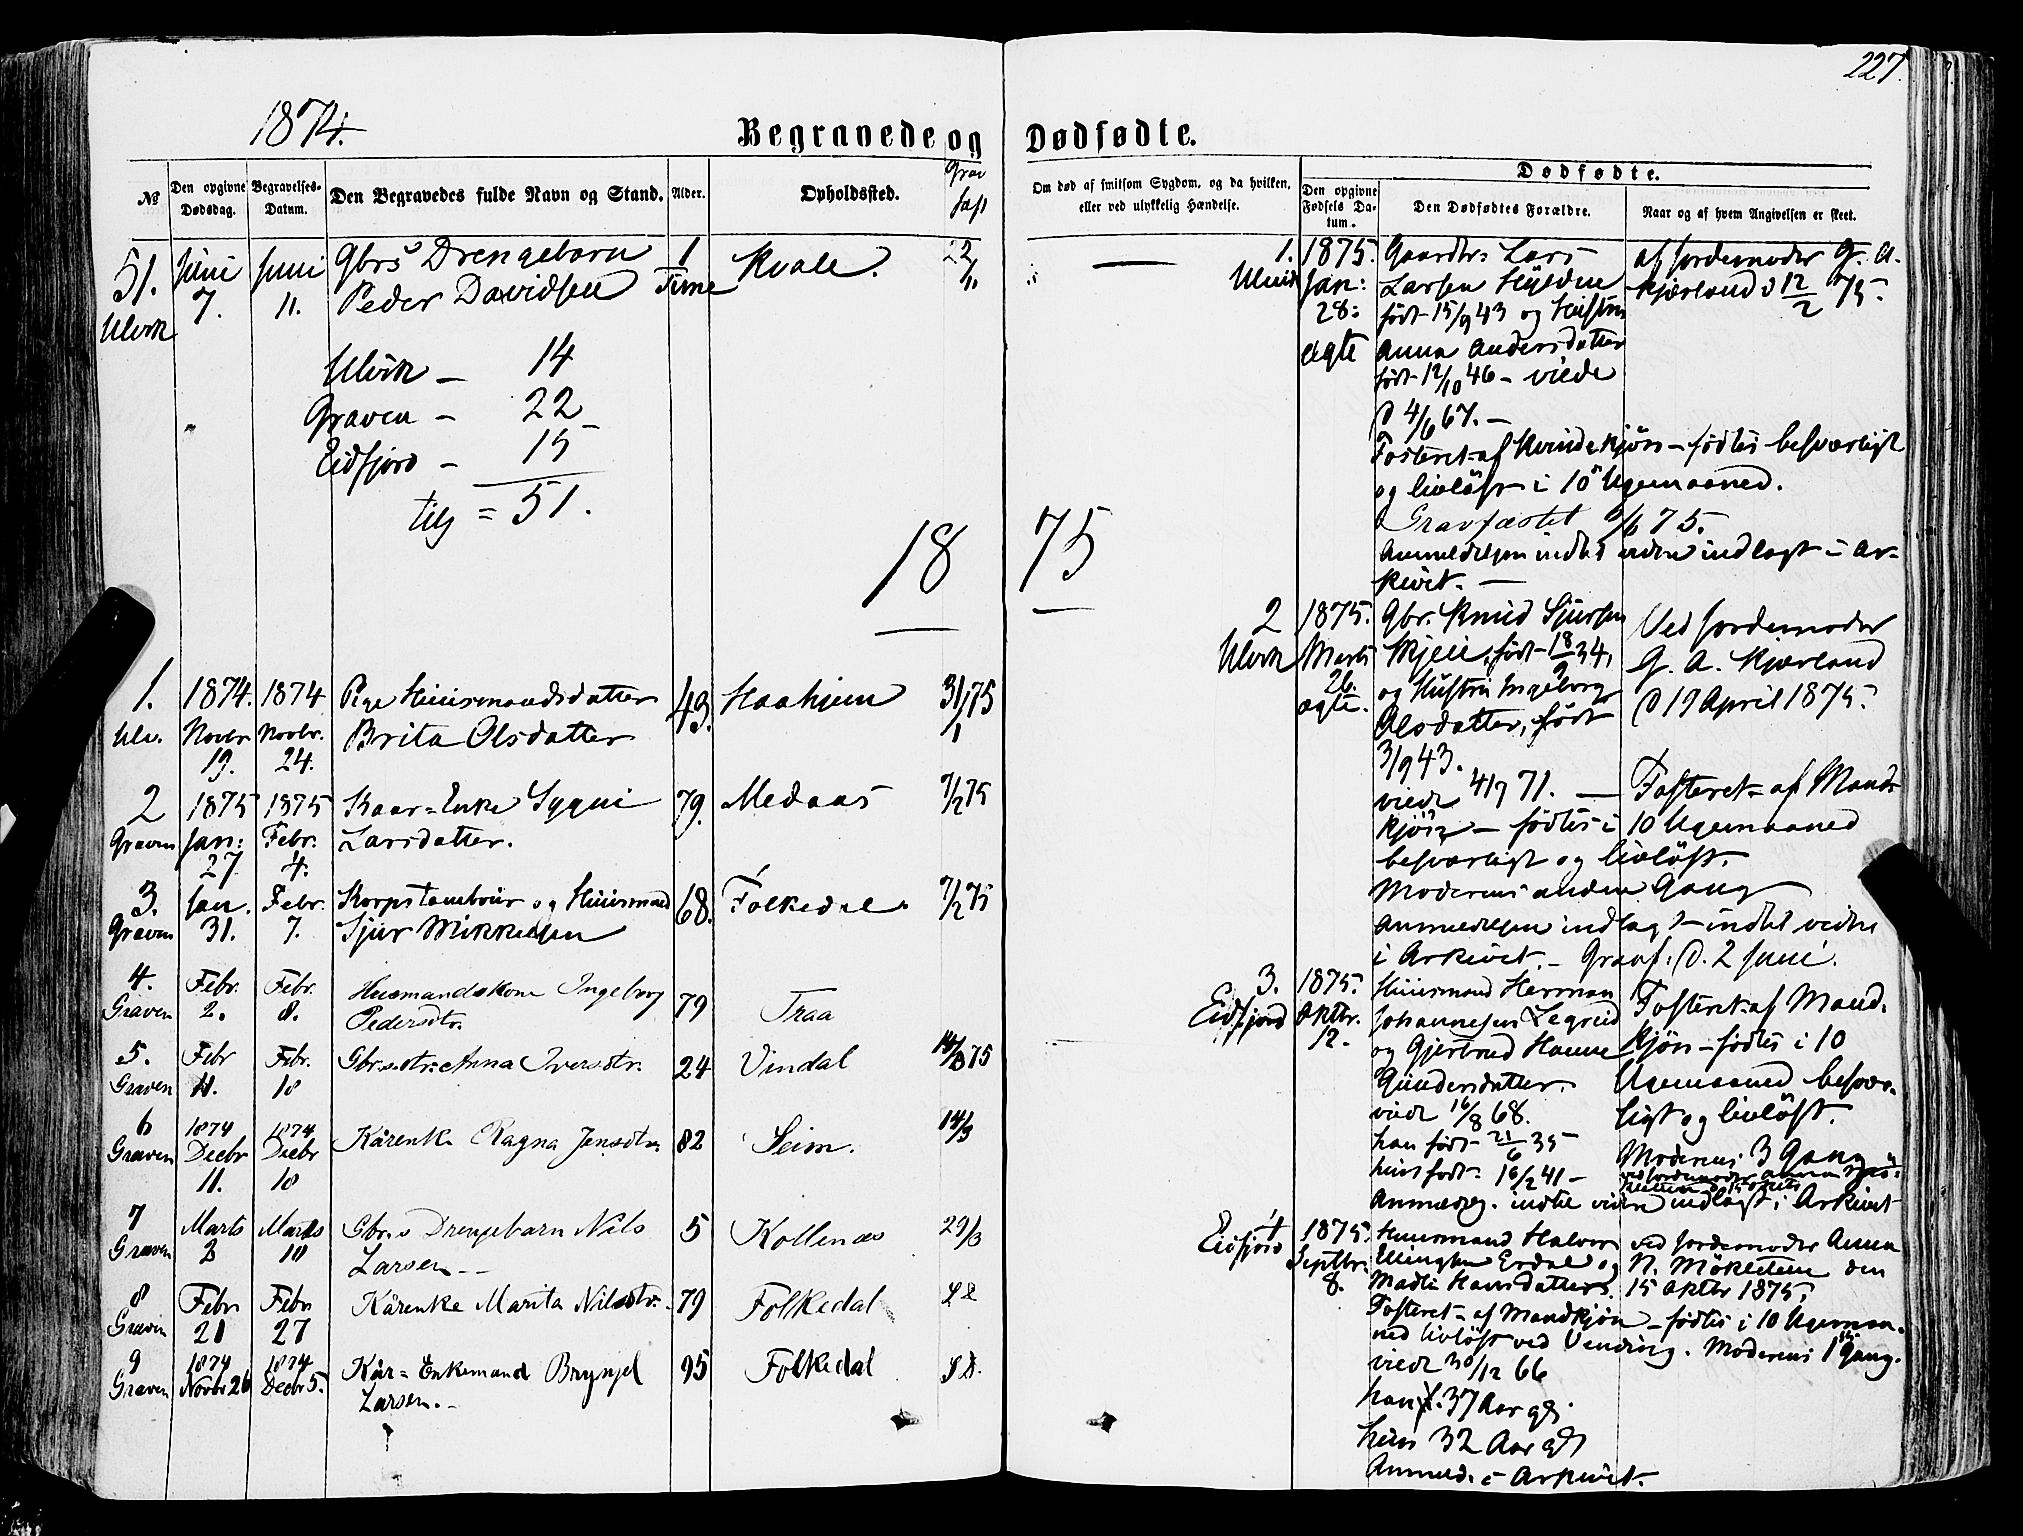 227.
1874.
Begravede og Dødfødte.
№
Den opgivne Dødsdag.
Begravelses-Datum.
Den Begravedes fulde Navn og Stand.
Alder.
Opholdssted.
Grav fæst
Om død af smitsom Sygdom, og da hvilken, eller ved ulykkelig Hændelse.
Dødfødte.
Den opgivne Fødsels Datum.
Den Dødfødtes Forældre.
Naar og af hvem Angivelsen er skeet.
51. Juni Juni Gbrs Drengebarn 1 Kvale.
Ulvik 7. 11. Peder Davidsen Time
Ulvik – 14
Graven – 22
Eidfjord – 15
tils = 51.
18 75
1. 1874. 1874 Pige Huusmandsdatter 43. Haahjem 31/1 75
Ulv. Novbr. Novbr. Brita Olsdatter
19. 24.
2 1875 1875 Kaar=Enke Sygni 79. Medaas 7/2 75
Graven Jan: Febr. Larsdatter.
27 4.
3. Jan. Febr. Korpstambour og Huusmand 68. Folkedal 7/2 75
Graven 31. 7. Sjur Mikkelsen
4. Febr. Febr. Husmandskone Ingeborg 79 Traa
Graven 2. 8. Pedersdtr.
5. Febr Febr. Gbr.sdtr. Anna Iversdtr. 24 Vindal 14/3 75
Graven 11. 18
6 1874 1874 Kårenke Ragna Jensdtr 82 Seim. 14/3
Graven Decbr Decbr
11. 18
7 Marts Marts Gbr.s Drengebarn Nils 5 Kollenæs 29/3
Graven 2 10 Larsen.
8 Febr Febr Kårenke Marita Nilsdtr. 79 Folkedal
Graven 21 27
9 1874 1874 Kår=Enkemand Brynjel 95 Folkedal
Graven Novbr 26 Decbr 5. Larsen.
1. 1875. Gaardbr. Lars af Jordemoder G. A.
Ulvik Jan: Larsen Hylden Kjærland d 12/2 75.
28. født 15/9 43 og Hustru
ægte Anna Andersdatter
født 12/10 46 – viede
d 4/6 67. –
Fosteret af Kvindekjøn – fødtes besværligt
og livløst i 10 Ugemaaned.
Gravfæstet 75.
Anmeldelsen indtil videre indlagt i Arkivet. –
2 1875. Gbr. Knud Sjursen Ved Jordemoder
Ulvik Marts Kjeie, født 18/9 34, G. A. Kjærland
26. og Hustru Ingeborg d 19 April 1875.
ægte. Olsdatter, født
3/9 43.
viede 4/7 71. – Fosteret af Mand
kjøn – fødtes i 10 Ugemaaned
besværligt og livløst.
Moderens anden Gang
Anmeldelsen indlagt indtil videre
i Arkivet. – Gravf. d. 2 Juni.
3. 1875. Huusmand Herman Fosteret af Mand.
Eidfjord Oktbr. Johannesen Legreid kjøn – fødtes i 10
12. og Gjertrud Hanne Ugemaaned besvær-
Gundersdatter ligt og livløst.
viede 16/8 68.
han født 21/6 35 Moderens 3 Gang
hun født 16/2 41 –
Anmeldelg. indtil videre indlagt i Arkivet
4 1875. Huusmand Halvor ved Jordemoder Anna
Eidfjord Septbr. Ellingsen Erdal og N. Mökletun den
8. Madli Hansdatter. 15 Oktbr 1875.
Fosteret af Mandkjøn – fødtes i 10 Ugemaa-
ned livløst ved Vending. Moderens 1 Gang.
viede 30/12 66
han f. 37 Aar gl.
hun 32 Aar gl
Anmeld. i Arkivet.